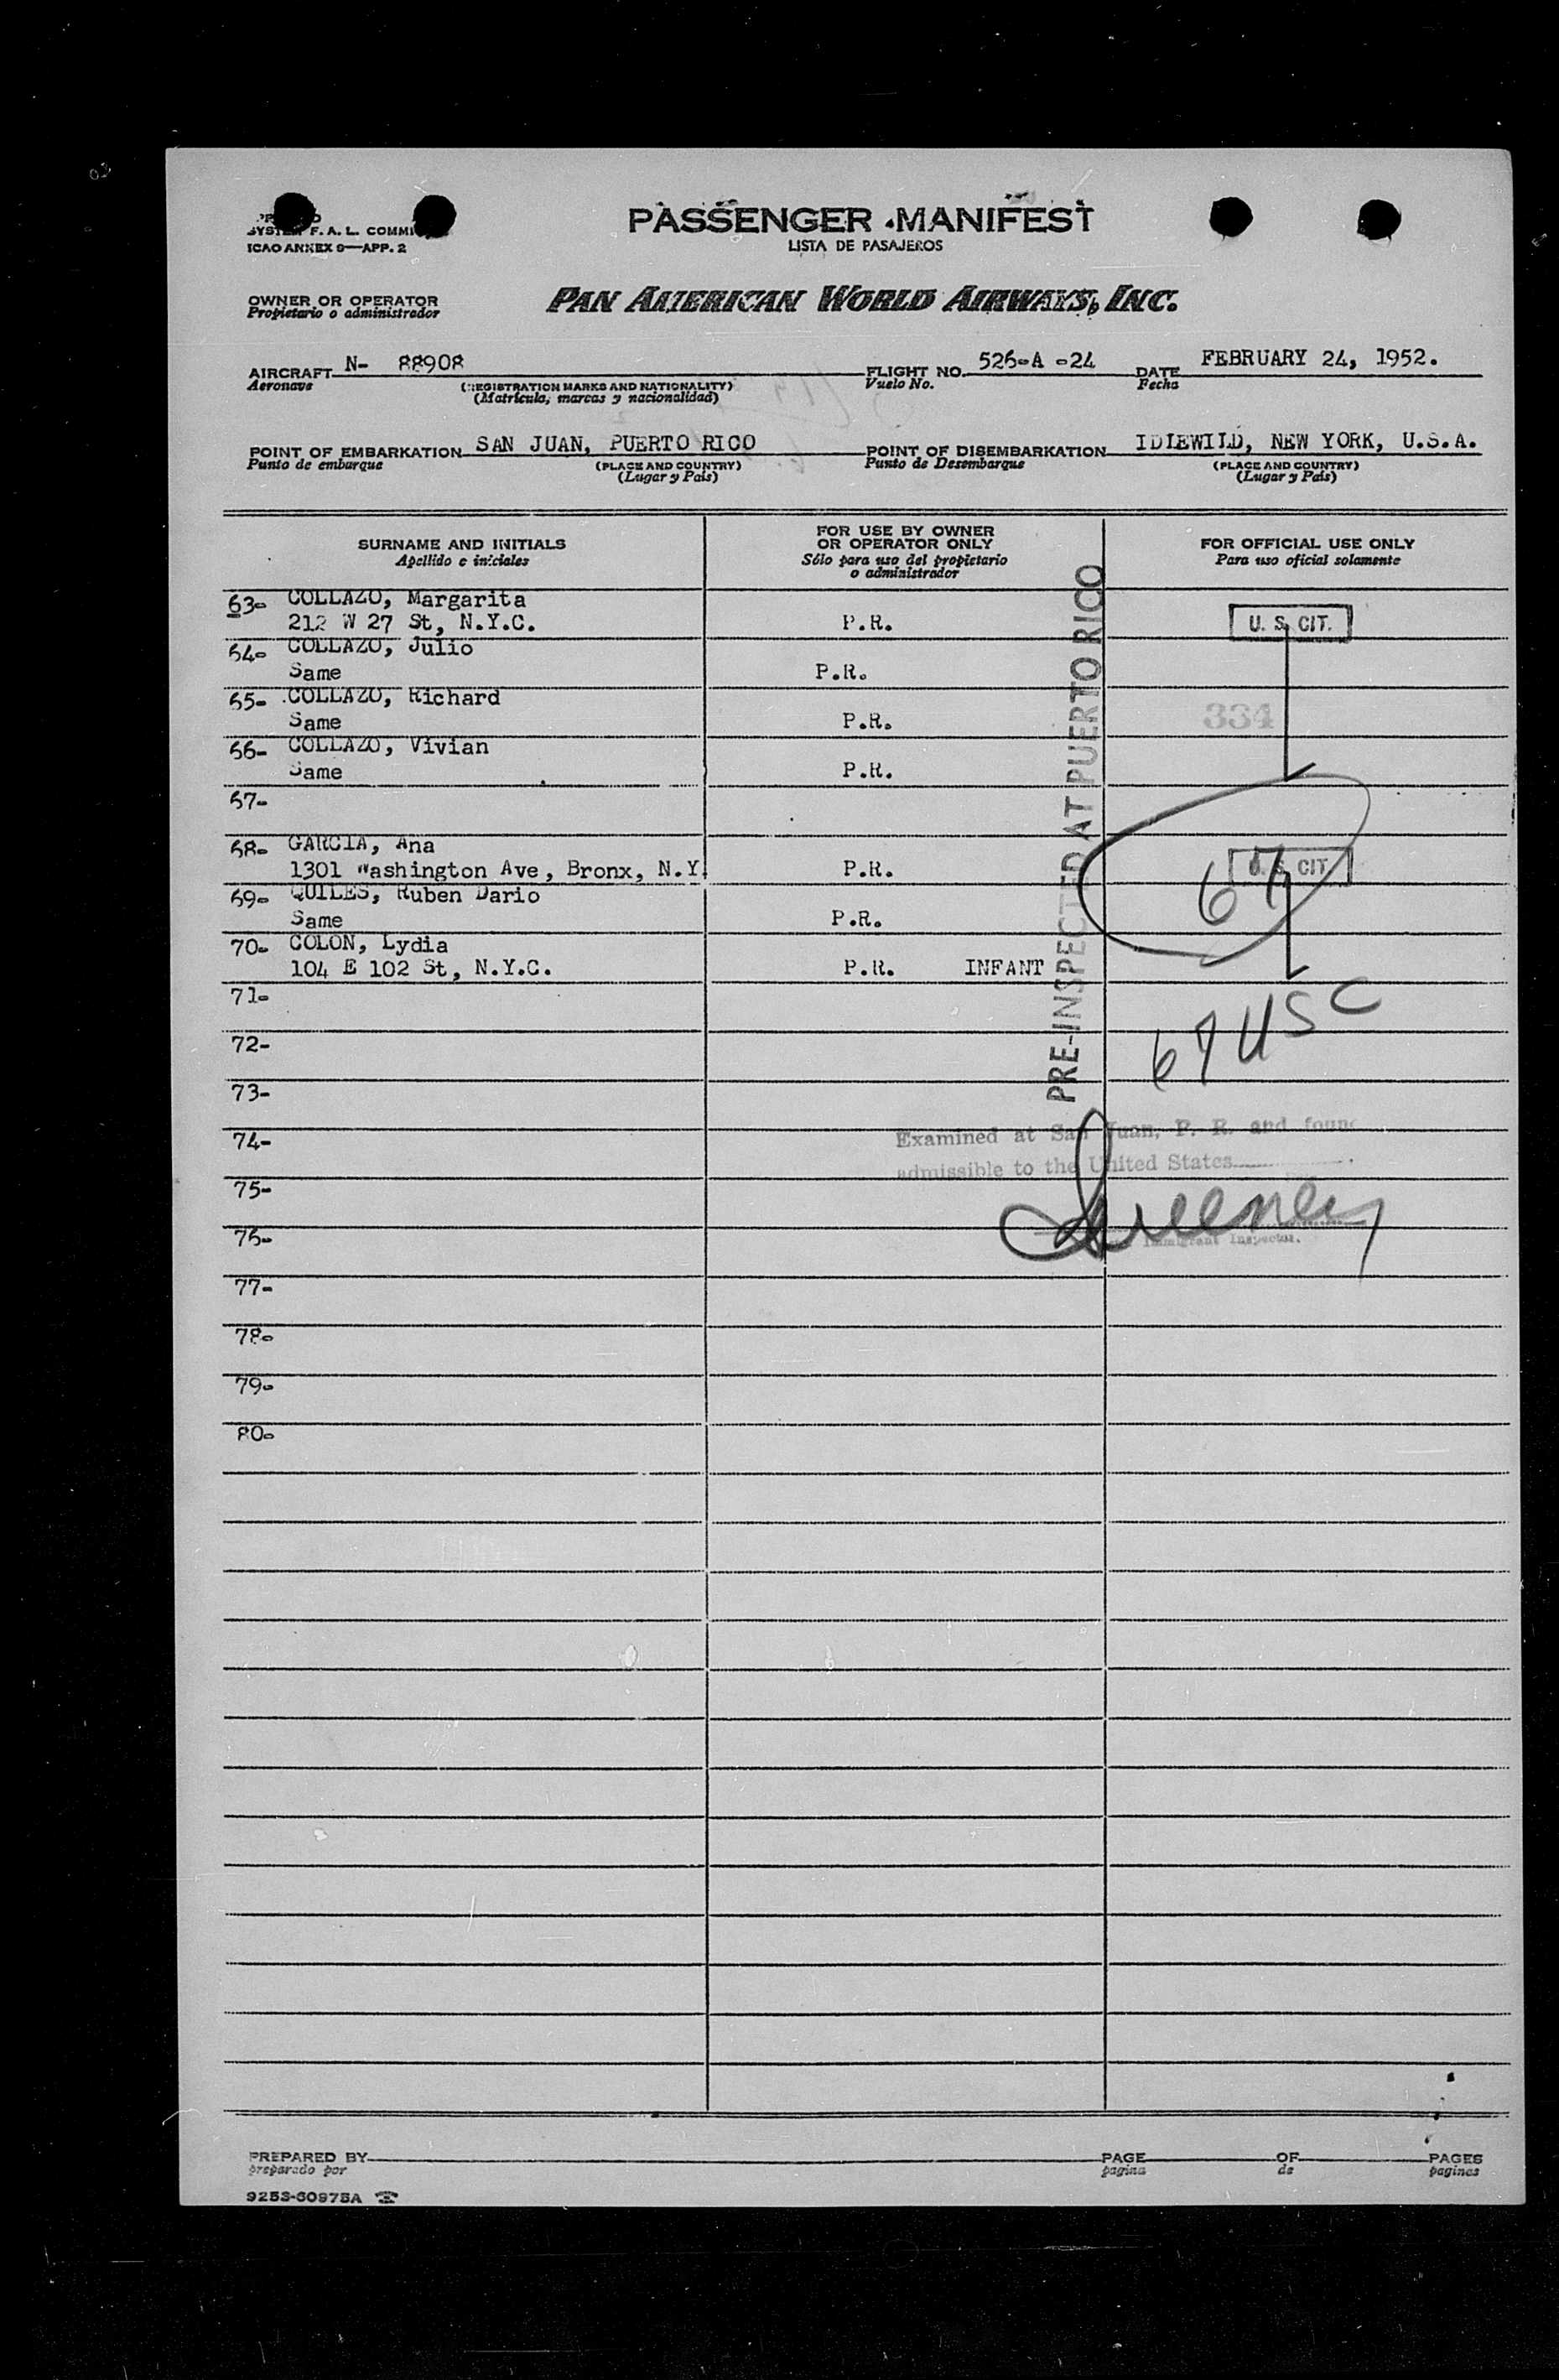 SYSTEM F. A. L. COMMI
ICAO ANNEX 9—APP. 2
PASSENGER MANIFEST
LISTA DE PASAJEROS
OWNER OR OPERATOR
Propietario o administrador
PAN AMERICAN WORLD AIRWAYS, INC.
AIRCRAFT N- 88908 FLIGHT NO. 526-A -24 DATE FEBRUARY 24, 1952.
Aeronave (REGISTRATION MARKS AND NATIONALITY) Vuelo No. Fecha
(Matrícula, marcas y nacionalidad)
POINT OF EMBARKATION SAN JUAN, PUERTO RICO POINT OF DISEMBARKATION IDLEWILD, NEW YORK, U.S.A.
Punto de embarque (PLACE AND COUNTRY) Punto de Desembarque (PLACE AND COUNTRY)
(Lugar y País) (Lugar y País)
SURNAME AND INITIALS
Apellido e iniciales
FOR USE BY OWNER
OR OPERATOR ONLY
Sólo para uso del propietario
o administrador
FOR OFFICIAL USE ONLY
Para uso oficial solamente
63- COLLAZO, Margarita
212 W 27 St, N.Y.C. P.R. U. S. CIT.
64- COLLAZO, Julio
Same P.R.
65- COLLAZO, Richard
Same P.R. 334
66- COLLAZO, Vivian
Same P.R.
67-
68- GARCIA, Ana
1301 Washington Ave, Bronx, N.Y. P.R. U. S. CIT.
67
69- QUILES, Ruben Dario
Same P.R.
70- COLON, Lydia
104 E 102 St, N.Y.C. P.R. INFANT
PRE-INSPECTED AT PUERTO RICO
71-
67 USC
72-
73-
74-
Examined at San Juan, P. R. and found
admissible to the United States
75-
76-
Immigrant Inspector.
77-
78-
79-
80-
PREPARED BY PAGE OF PAGES
preparado por pagina de paginas
9253-60975A